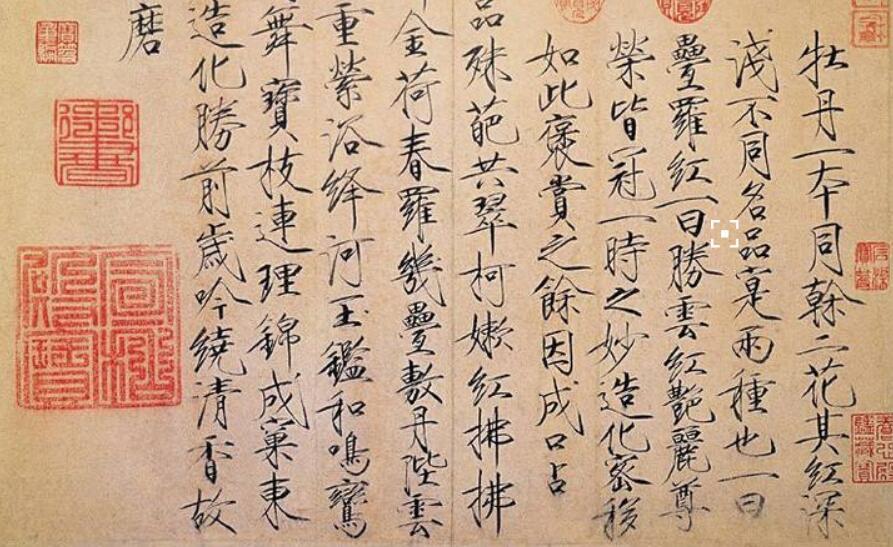 牡丹一本同幹二花其紅深
淺不同名品寔兩種也一曰
疊羅紅一曰勝雲紅艷麗尊
榮皆冠一時之妙造化密移
如此褒賞之餘因成口占
品殊葩共翠柯嫩紅拂拂
金荷春羅幾疊敷丹陛雲
重縈浴絳河玉鑑和鳴鸞
舞寶枝連理錦成窠東
造化勝前歲吟繞清香故
磨